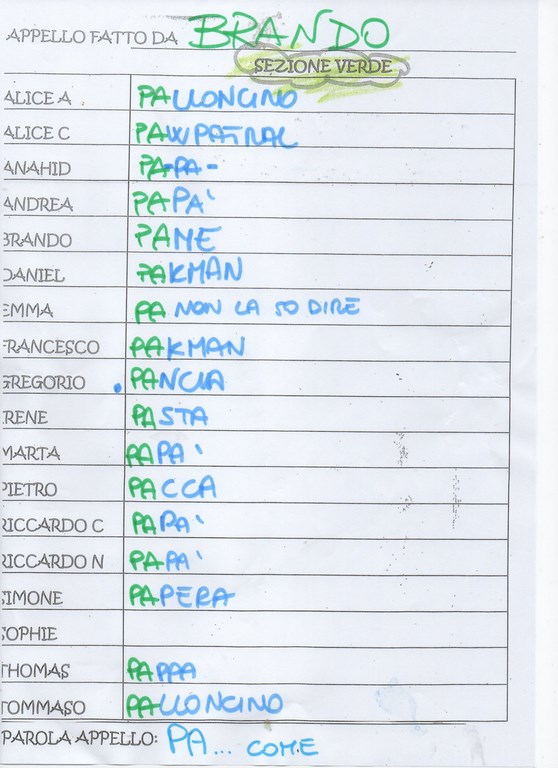 APPELLO FATTO DA BRANDO
SEZIONE VERDE
ALICE A PALLONCINO
ALICE C PAW PATROL
ANAHID PA-PA-
ANDREA PAPA'
BRANDO PANE
DANIEL PAKMAN
EMMA PA NON LA SO DIRE
FRANCESCO PAKMAN
GREGORIO PANCIA
IRENE PASTA
MARTA PAPA'
PIETRO PACCA
RICCARDO C PAPA'
RICCARDO N PAPA'
SIMONE PAPERA
SOPHIE
THOMAS PAPPA
TOMMASO PALLONCINO
PAROLA APPELLO: PA... COME